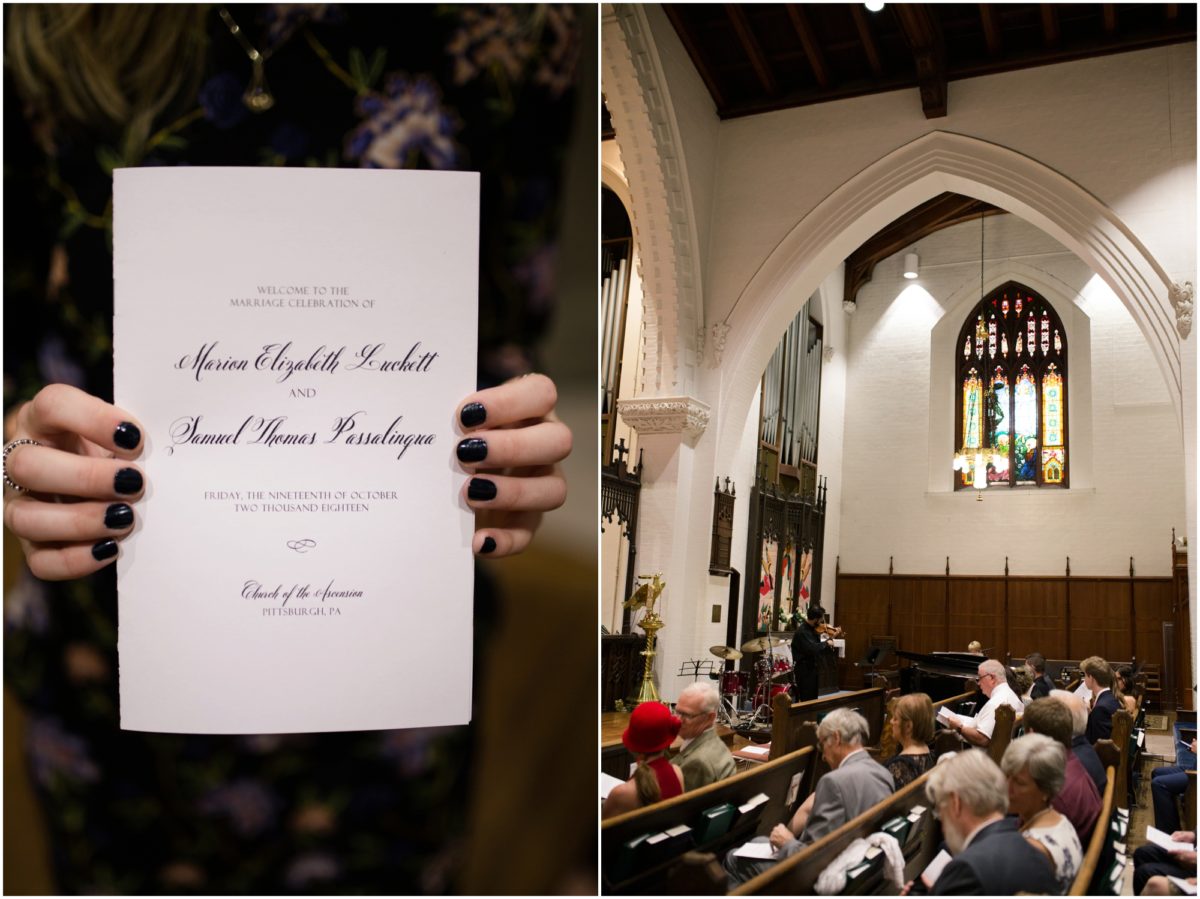 WELCOME TO THE
MARRIAGE CELEBRATION OF
Marion Elizabeth Luckett
AND
Samuel Thomas Passalinqua
FRIDAY, THE NINETEENTH OF OCTOBER
TWO THOUSAND EIGHTEEN
Church of the Ascension
PITTSBURGH, PA